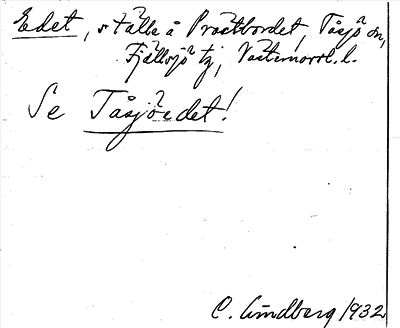 Edet, ställe å Prostbordet, Tåsjö sn,
Fjällsjö tg, Västernorrl. l.
Se Tåsjöedet!
C. Lindberg 1932